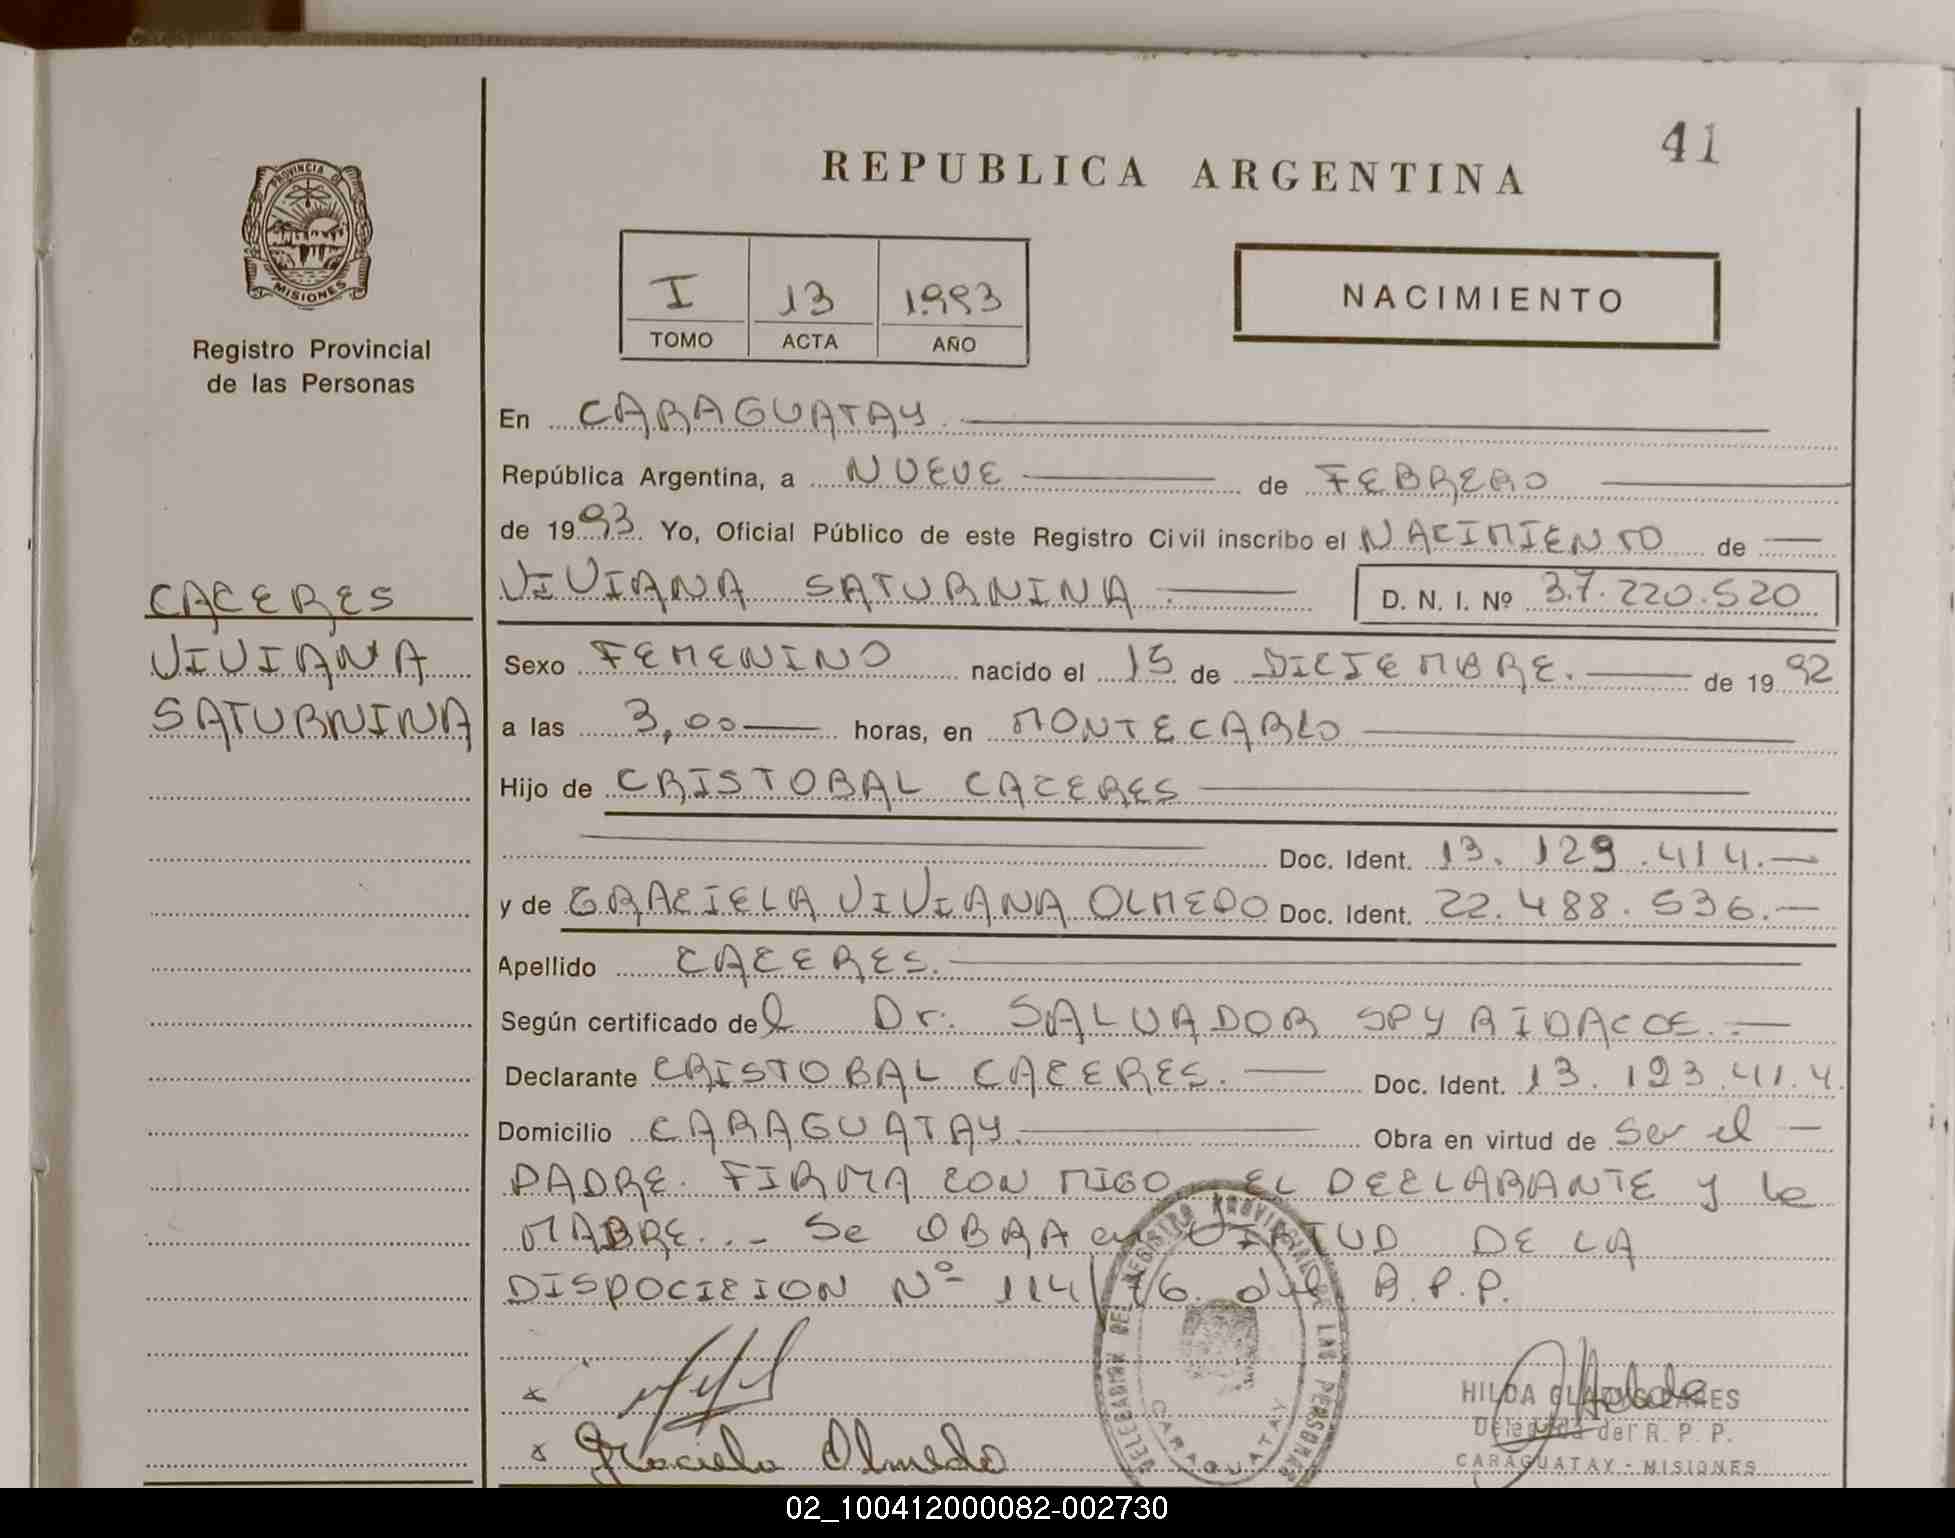 41
REPUBLICA ARGENTINA
PROVINCIA DE
MISIONES
Registro Provincial
de las Personas
I 13 1.993
TOMO ACTA AÑO
NACIMIENTO
En CARAGUATAY.
República Argentina, a NUEVE de FEBRERO
de 1993. Yo, Oficial Público de este Registro Civil inscribo el NACIMIENTO de
VIVIANA SATURNINA. D. N. I. Nº 37.220.520
CACERES
VIVIANA
SATURNINA
Sexo FEMENINO nacido el 15 de DICIEMBRE. de 1992
a las 3,00 horas, en MONTECARLO
Hijo de CRISTOBAL CACERES
Doc. Ident. 13.129.414.
y de GRACIELA VIVIANA OLMEDO Doc. Ident. 22.488.536.
Apellido CACERES.
Según certificado del Dr: SALVADOR SPYRIDACOE.
Declarante CRISTOBAL CACERES. Doc. Ident. 13.123.41.4
Domicilio CARAGUATAY. Obra en virtud de ser el
PADRE. FIRMA CON MIGO EL DECLARANTE y la
MADRE... Se OBRA en VIRTUD DE LA
DISPOCICION Nº 114/76. del R.P.P.
DELEGACION DEL REGISTRO PROVINCIAL DE LAS PERSONAS
CARAGUATAY
x
x Graciela Olmedo
HILDA
Delegada del R. P. P.
CARAGUATAY - MISIONES
02_100412000082-002730